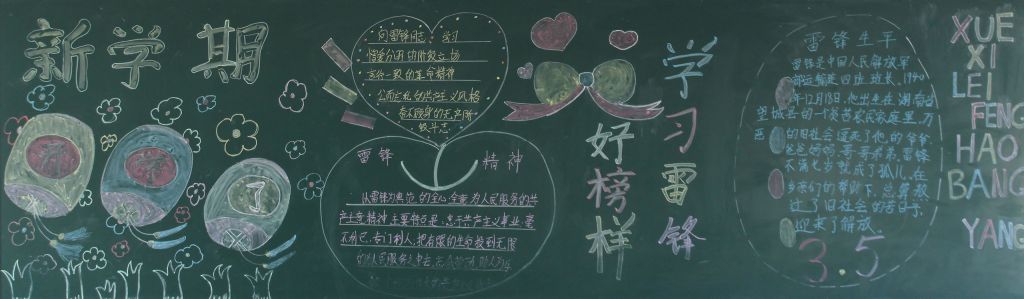 新学期
向雷锋同志 学习
憎爱分明的阶级立场
言行一致的革命精神
公而忘私的共产主义风格
奋不顾身的无产阶
级斗志
雷锋 精神
从雷锋为典范 的全心全意为人民服务的共
产主义精神
的人民服务之中去
学习雷锋
好榜样
雷锋生平
雷锋是中国人民解放军
部运输连四班班长，1940
年12月18日，他出生在湖南省
望城县的一个贫苦农民家庭里，万
恶的旧社会逼死了他的爷爷
爸爸妈妈、哥哥弟弟，雷锋
不满七岁就成了孤儿，在
的帮助下，总算熬
过了旧社会的苦日子，
迎来了解放。
3.5
XUE
XI
LEI
FENG
HAO
BANG
YANG